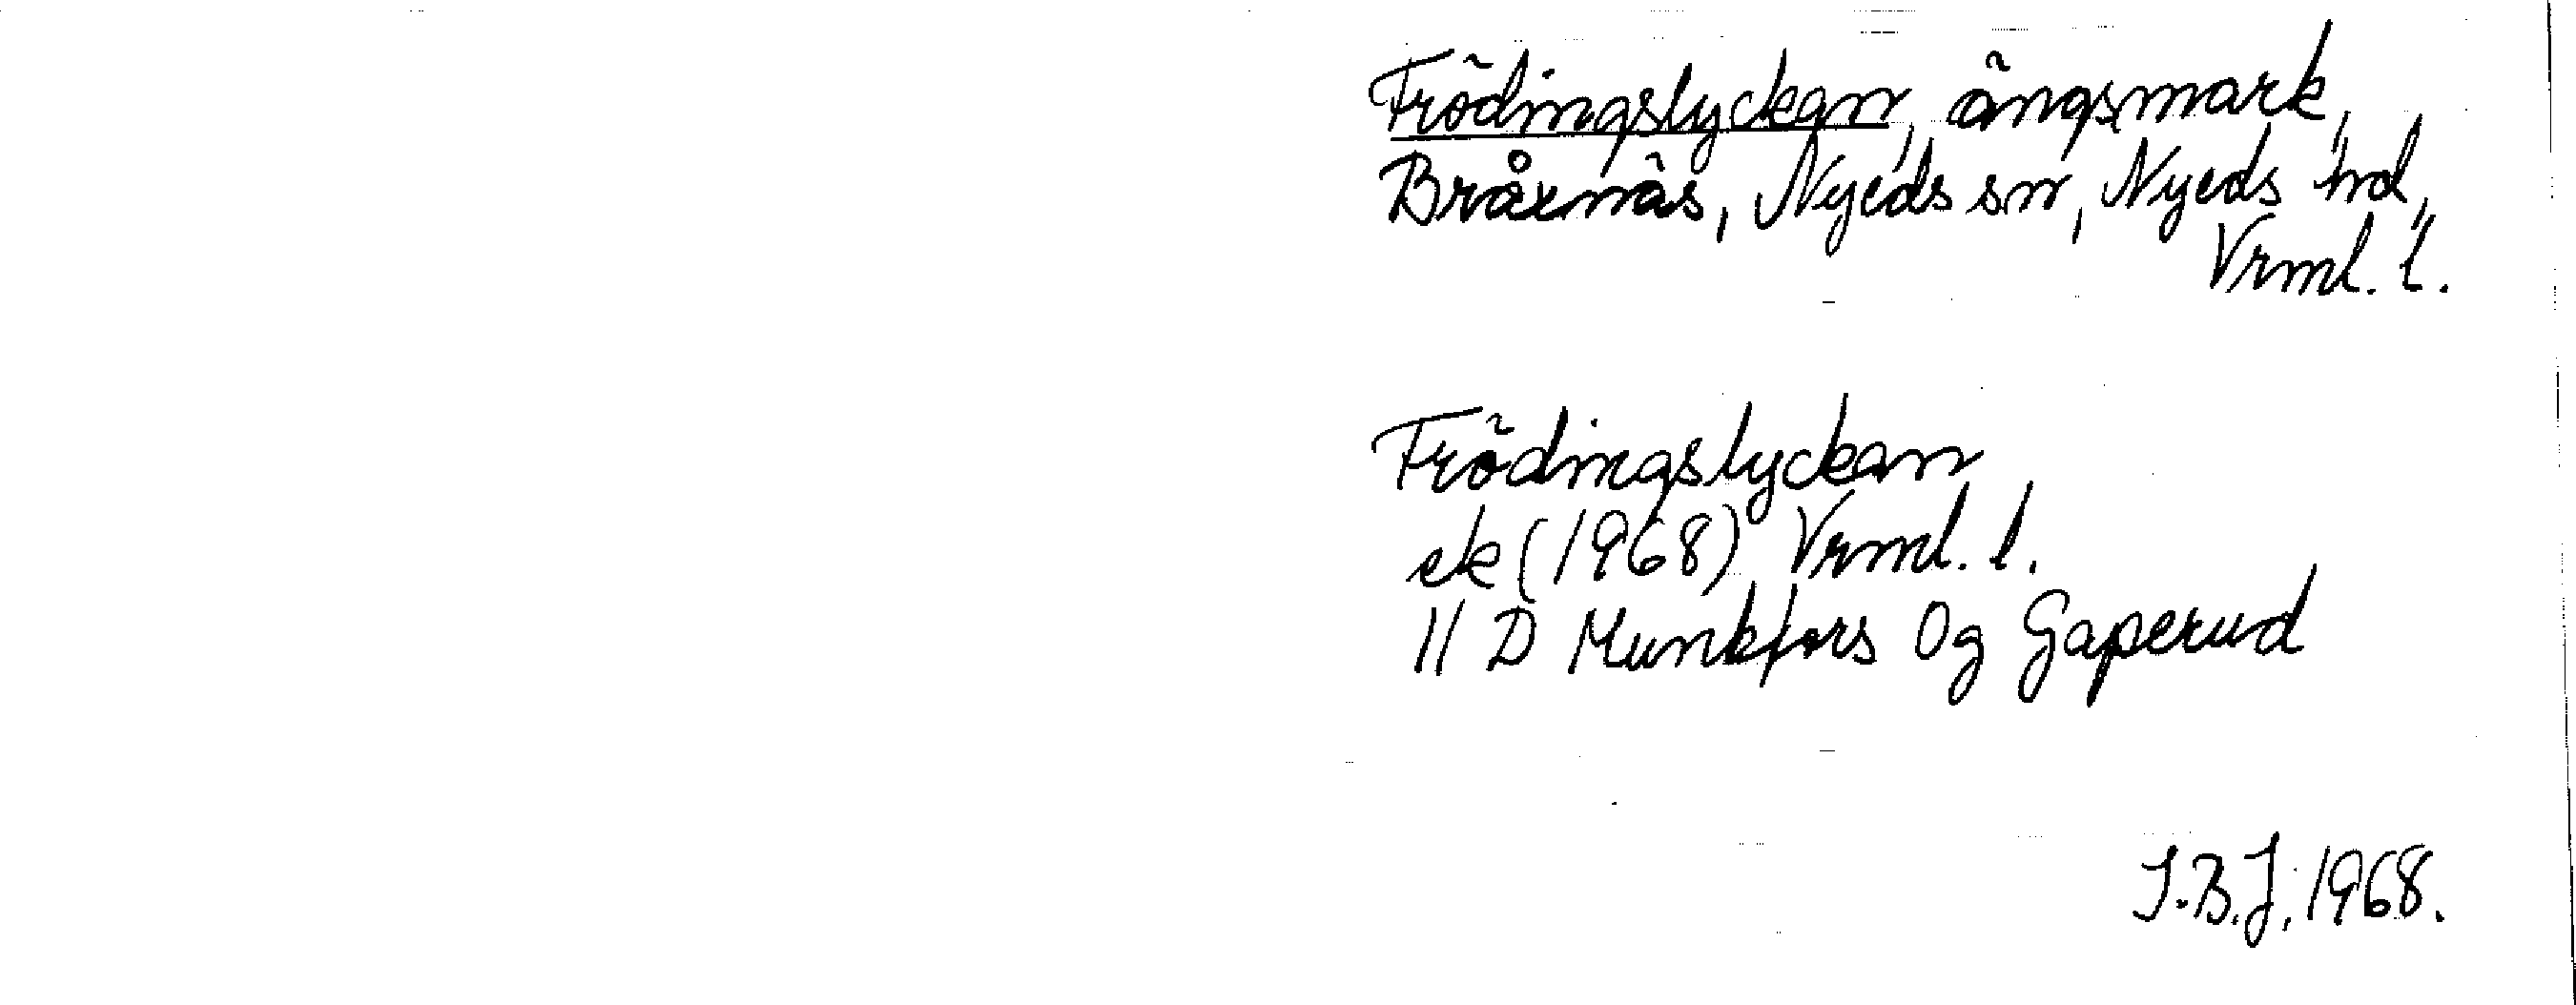 Frödingslyckan, ängsmark,
Bråxnäs, Nyeds sn, Nyeds hd,
Vrml. l.
Frödingslyckan
ek (1968) Vrml. l.
11 D Munkfors 0g Gaperud
I.B.J. 1968.